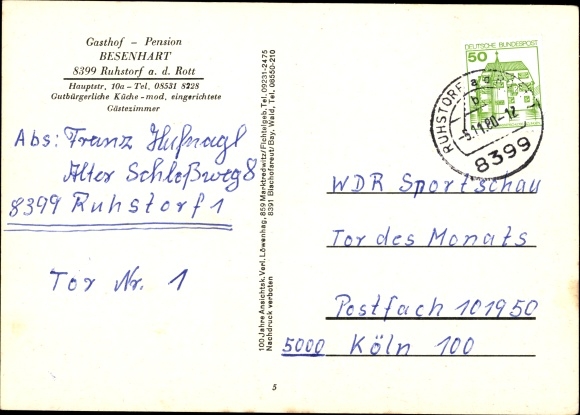 Gasthof - Pension
BESENHART
8399 Ruhstorf a. d. Rott
Hauptstr. 10a - Tel. 08531 8228
Gutbürgerliche Küche - mod. eingerichtete
Gästezimmer
Abs: Franz Hufnagl
Alter Schloßweg 8
8399 Ruhstorf 1
Tor Nr. 1
100 Jahre Ansichtsk. Verl. Löwenhag, 859 Marktredwitz/Fichtelgeb. Tel. 09231-2475
8391 Bischofsreut/Bay. Wald, Tel. 08550-210
Nachdruck verboten
5
DEUTSCHE BUNDESPOST
50
RUHSTORF a d ROTT
b
-5.11.80-12
8399
WDR Sportschau
Tor des Monats
Postfach 101950
5000 Köln 100